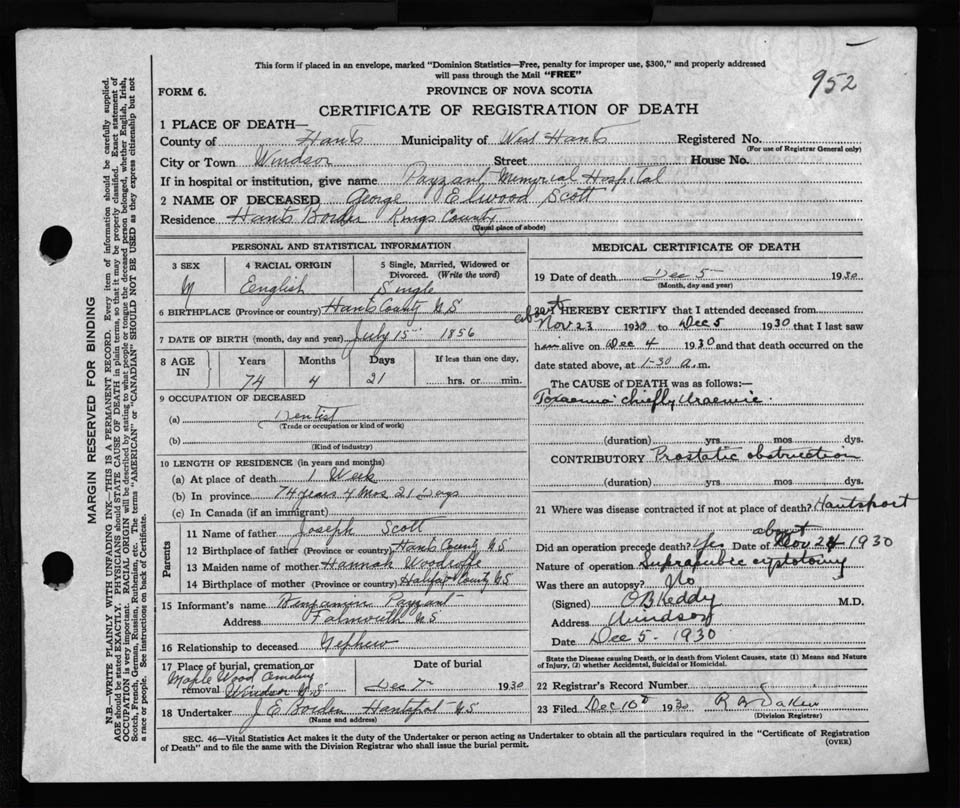 952
This form if placed in an envelope, marked "Dominion Statistics—Free, penalty for improper use, $300," and properly addressed
will pass through the Mail "FREE"
FORM 6.
PROVINCE OF NOVA SCOTIA
CERTIFICATE OF REGISTRATION OF DEATH
1 PLACE OF DEATH—
County of Hants Municipality of West Hants Registered No.
(For use of Registrar General only)
City or Town Windsor Street House No.
If in hospital or institution, give name Payzant Memorial Hospital
2 NAME OF DECEASED George Elwood Scott
Residence Hants Border Kings County
(Usual place of abode)
PERSONAL AND STATISTICAL INFORMATION
3 SEX 4 RACIAL ORIGIN 5 Single, Married, Widowed or
Divorced. (Write the word)
M English Single
6 BIRTHPLACE (Province or country) Hants County N.S
7 DATE OF BIRTH (month, day and year) July 15 1856
8 AGE IN Years Months Days If less than one day,
74 4 21 hrs. or min.
9 OCCUPATION OF DECEASED
(a) Dentist
(Trade or occupation or kind of work)
(b)
(Kind of industry)
10 LENGTH OF RESIDENCE (in years and months)
(a) At place of death 1 Week
(b) In province 74 years 4 Mos 21 Days
(c) In Canada (if an immigrant)
Parents
11 Name of father Joseph Scott
12 Birthplace of father (Province or country) Hants County N.S
13 Maiden name of mother Hannah Woodroffe
14 Birthplace of mother (Province or country) Halifax County N.S
15 Informant's name Benjamin Payzant
Address Falmouth N.S
16 Relationship to deceased Nephew
17 Place of burial, cremation or
removal Maple Wood Cemetery
Windsor N.S
Date of burial
Dec 7 1930
18 Undertaker J. E. Borden Hantsport N.S
(Name and address)
MEDICAL CERTIFICATE OF DEATH
19 Date of death Dec 5 1930
(Month, day and year)
20 I HEREBY CERTIFY that I attended deceased from
about Nov 23 1930 to Dec 5 1930 that I last saw
him alive on Dec 4 1930 and that death occurred on the
date stated above, at 1-30 a.m.
The CAUSE OF DEATH was as follows:—
Toxaemia chiefly Uraemic.
(duration) yrs. mos. dys.
CONTRIBUTORY Prostatic obstruction
(duration) yrs. mos. dys.
21 Where was disease contracted if not at place of death? Hantsport
Did an operation precede death? Yes Date of about Nov 24 1930
Nature of operation Suprapubic cystotomy
Was there an autopsy? No
(Signed) O B Keddy M.D.
Address Windsor
Date Dec 5 - 1930
State the Disease causing Death, or in death from Violent Causes, state (1) Means and Nature
of Injury, (2) whether Accidental, Suicidal or Homicidal.
22 Registrar's Record Number
23 Filed Dec 10th 1930
(Division Registrar)
SEC. 46—Vital Statistics Act makes it the duty of the Undertaker or person acting as Undertaker to obtain all the particulars required in the "Certificate of Registration
of Death" and to file the same with the Division Registrar who shall issue the burial permit.
(OVER)
MARGIN RESERVED FOR BINDING
N.B.—WRITE PLAINLY WITH UNFADING INK—THIS IS A PERMANENT RECORD. Every item of information should be carefully supplied.
AGE should be stated EXACTLY. PHYSICIANS should STATE CAUSE OF DEATH in plain terms, so that it may be properly classified. Exact statement of
OCCUPATION is very important. RACIAL ORIGIN will be described by stating to what people or tongue the deceased person belonged, whether English, Irish,
Scotch, French, German, Russian, Ruthenian, etc. The terms "AMERICAN" or "CANADIAN" SHOULD NOT BE USED as they express citizenship but not
a race or people. See instructions on back of Certificate.